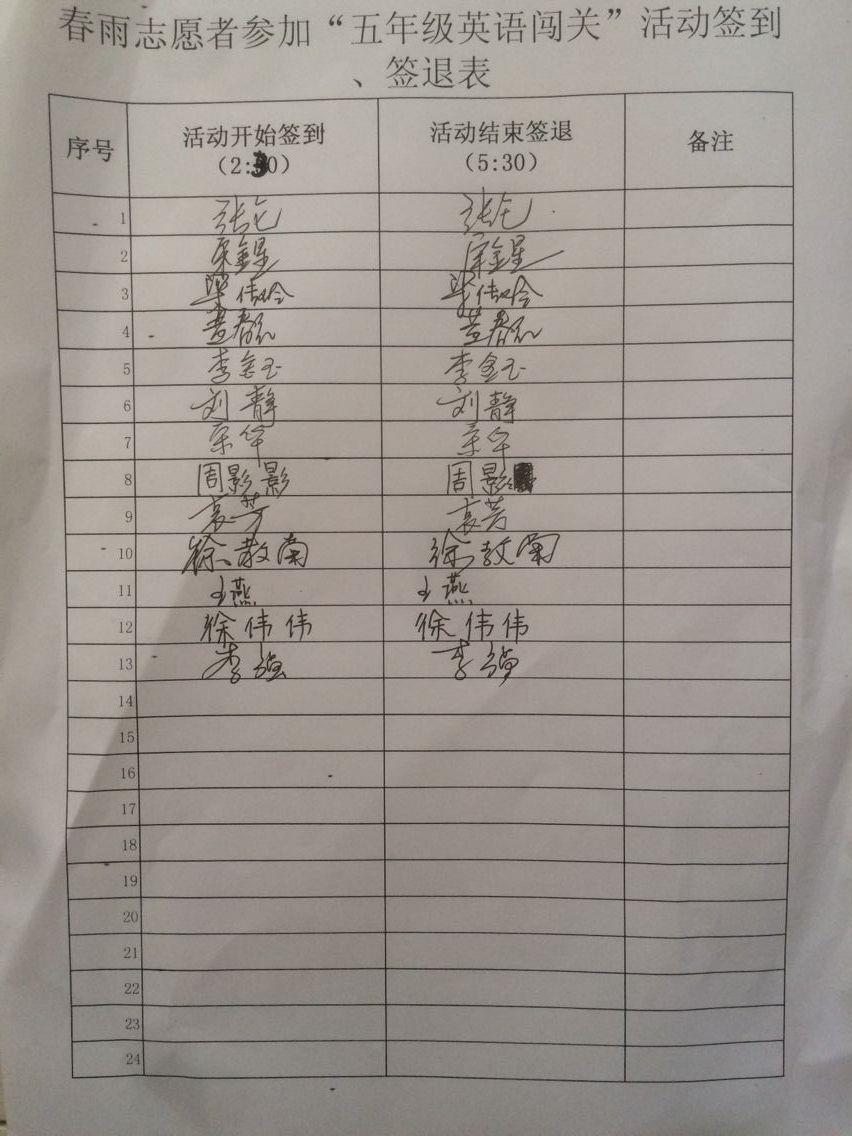 春雨志愿者参加“五年级英语闯关”活动签到
、签退表
序号 活动开始签到 (2:30) 活动结束签退 (5:30) 备注
1
2 金星 金星
3 伟玲 伟玲
4 春 春
5 李金玉 李金玉
6 刘静 刘静
7
8 周影影 周影
9 高芳 高芳
10 徐敬南 徐敬南
11 王燕 王燕
12 徐伟伟 徐伟伟
13 李强 李强
14
15
16
17
18
19
20
21
22
23
24